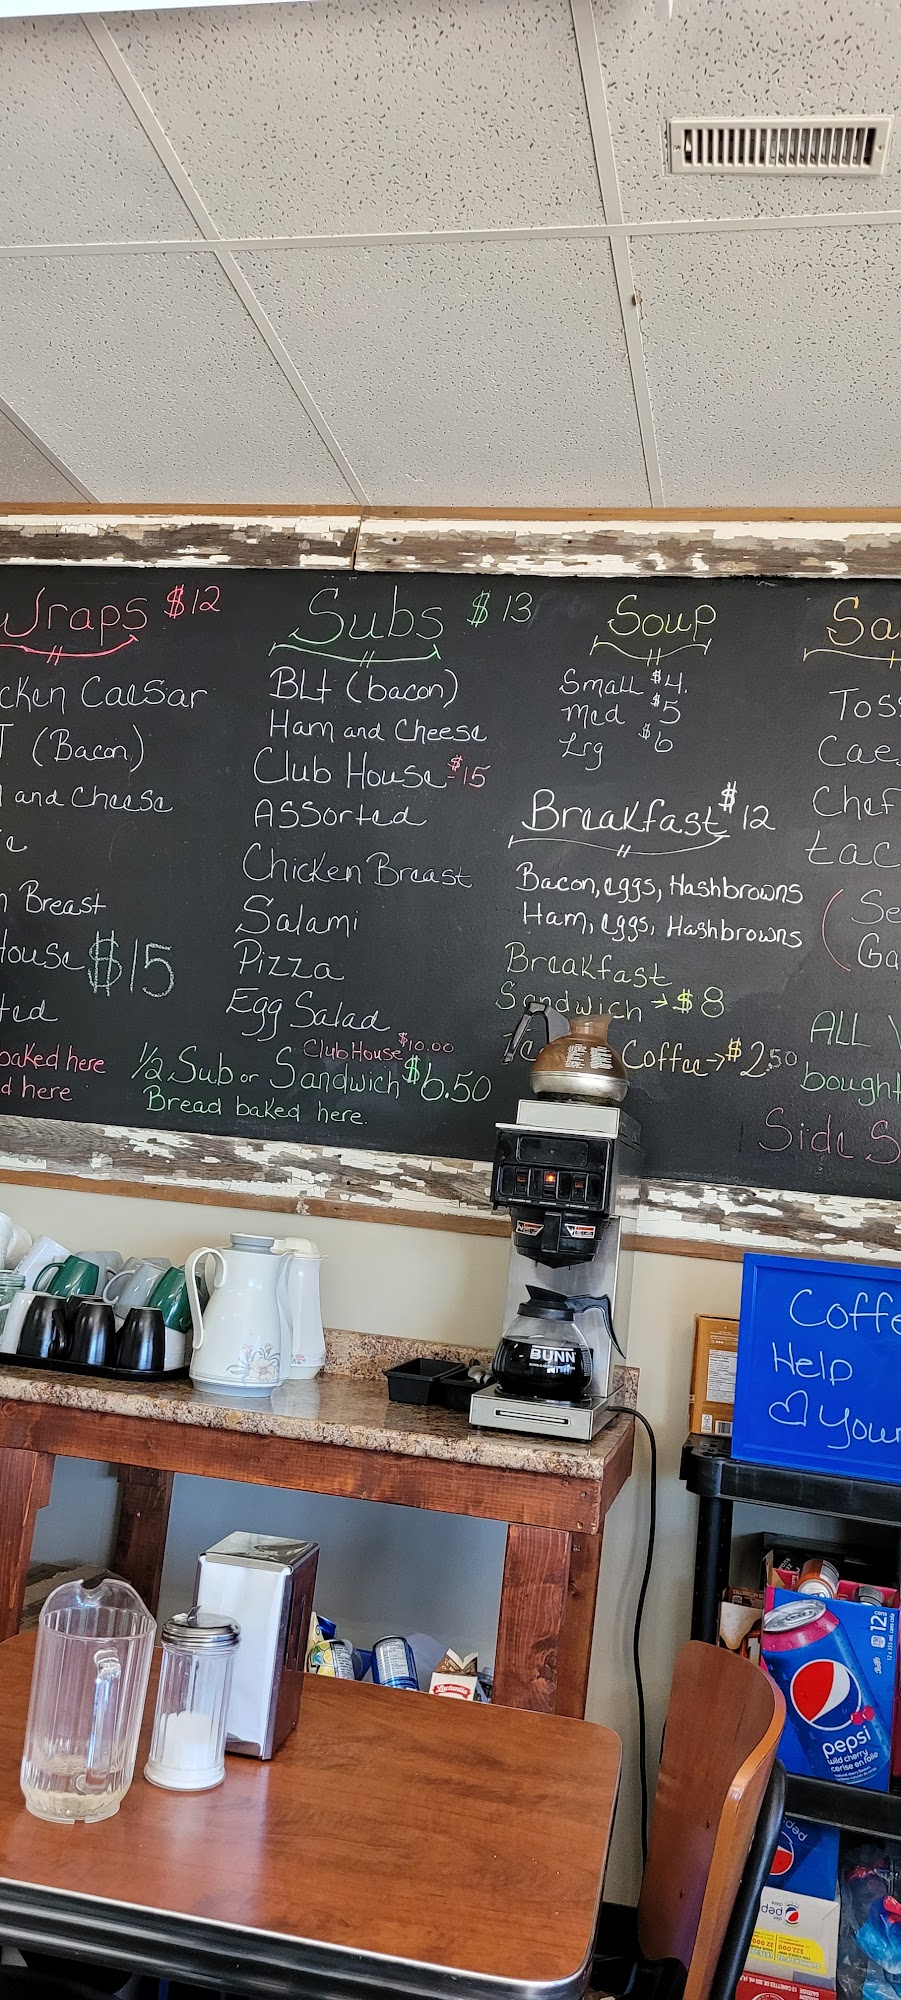 Wraps $12
cken Caesar
T (Bacon)
and Cheese
Breast
House $15
ted
baked here
d here
Subs $13
BLt (bacon)
Ham and Cheese
Club House $15
Assorted
Chicken Breast
Salami
Pizza
Egg Salad
Club House $10.00
1/2 Sub or Sandwich $6.50
Bread baked here.
Soup
Small $4.
Med $5
Lrg $6
Breakfast $12
Bacon, eggs, Hashbrowns
Ham, eggs, Hashbrowns
Breakfast
Sandwich → $8
Coffee → $2.50
Sa
Toss
Cae
Chef
tac
(Se
Ga
ALL
bought
Side S
BUNN
Coffe
Help
♡ your
Lactantia
12
pepsi
wild cherry
cerise en folie
pepsi